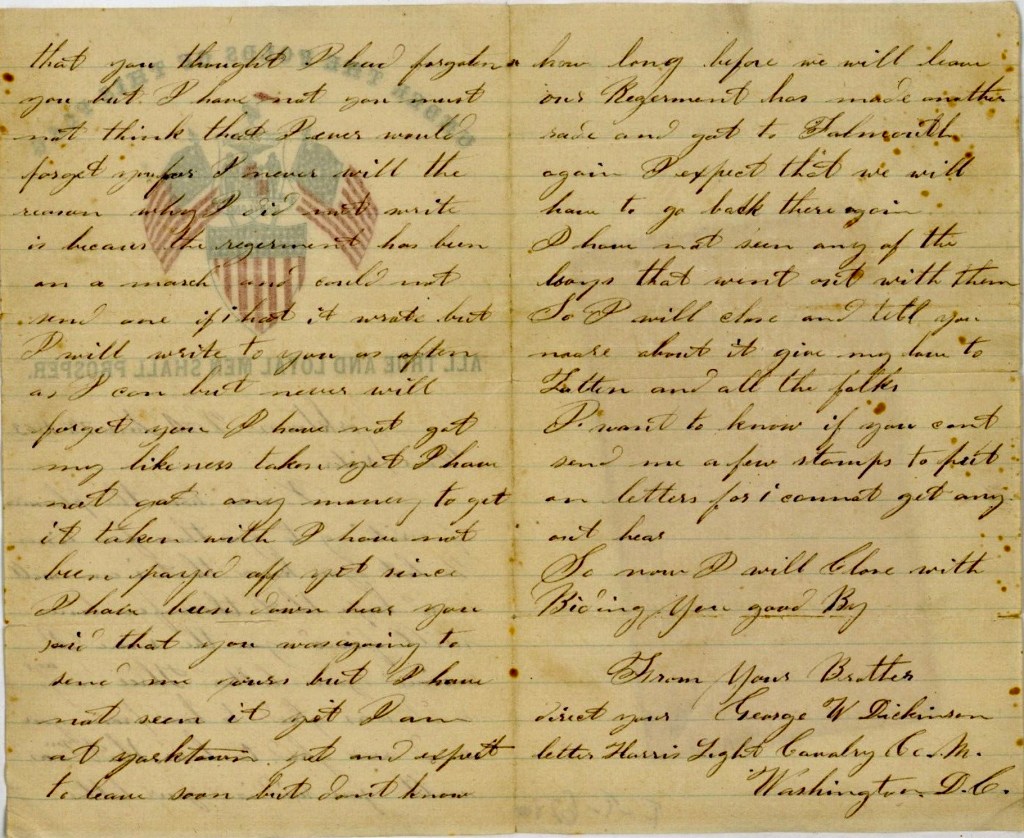 that you thought I had forgoten
you but I have not you must
not think that I ever would
forget you for I never will the
reason why I did not write
is becaus the regerment has been
on a march and could not
send one if i hat it wrote but
I will write to you as often
as I can but never will
forget you I have not got
my likeness taken yet I have
not got any money to get
it taken with I have not
been payed off yet since
I have been down hear you
said that you was agoing to
send me yours but I have
not seen it yet I am
at yorktown yet and expect
to leave soon but dont know
how long before we will leave
our Regerment has made another
rade and got to Falmouth
again I expect that we will
have to go back there again
I have not seen any of the
boys that went out with them
So I will close and tell you
moore about it give my love to
and all the folks
I want to know if you cant
send me a few stamps to put
on letters for i cannot get any
out hear
So now I will Close with
Biding You good By
From Your Brother
direct your George W Dickinson
letter Harris Light Cavalry Co. M.
Washington D.C.
ALL TRUE AND LOYAL MEN SHALL PROSPER.